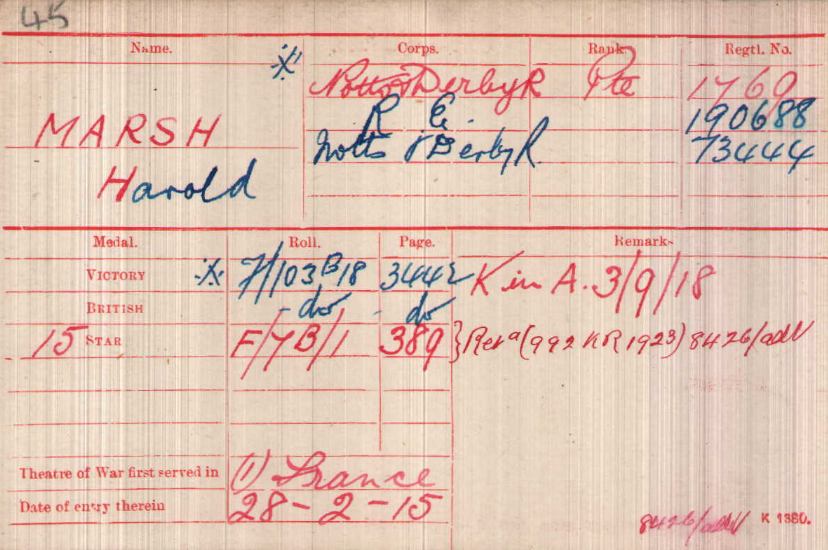 45
Name. Corps. Rank. Regtl. No.
Notts & Derby R Pte 1769
MARSH R E. 190688
Harold Notts & Derby R. 73444
Medal. Roll. Page. Remarks
VICTORY F/103B18 3442 K in A. 3/9/18
BRITISH -do- do
15 STAR F/7B/1 389 } Retd (992 KR 1923) 8426/adt
Theatre of War first served in (1) France
Date of entry therein 28-2-15
8426/adt K 1380.